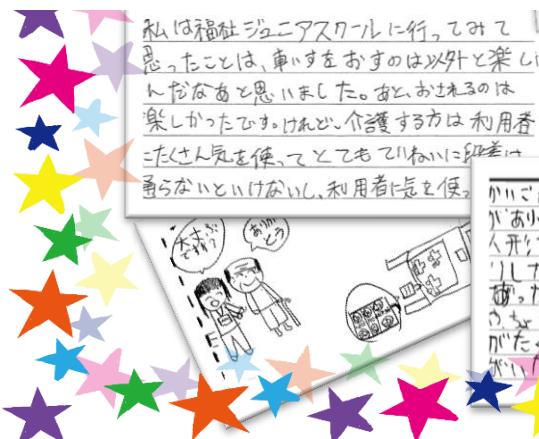 私は福祉ジュニアスクールに行ってみて
思ったことは、車いすをおすのは以外と楽し
んだなあと思いました。あと、おされるのは
楽しかったです。けれど、介護する方は利用者
にたくさん気を使ってとてもていねいに段差は
通らないといけないし、利用者に気を使っ
大丈夫ですか?
ありがとう
かいご
があり